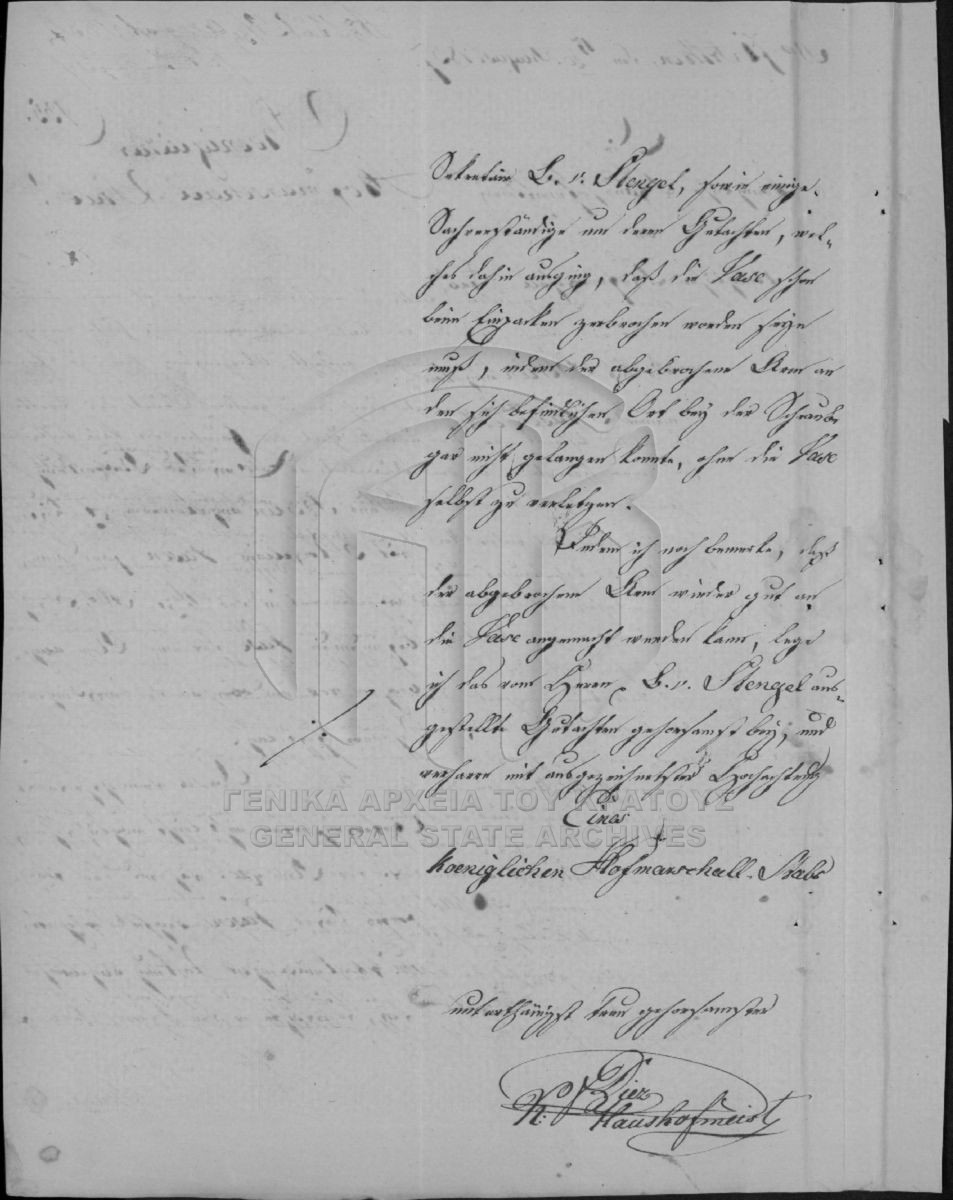 Sekretair B. v. Stengel, sowie einige
Sachverständige um deren Gutachten, wel-
ches dahin ausging, daß die Vase schon
beim Einpacken zerbrochen worden seyn
muß, indem der abgebrochene Arm an
den sich befindlichen Ort bey der Schraube
gar nicht gelangen konnte, ohne die Vase
selbst zu verletzen.
Indem ich noch bemerke, daß
der abgebrochene Arm wieder gut an
die Vase angemacht werden kann, lege
ich das vom Herrn B. v. Stengel aus-
gestellte Gutachten gehorsamst bey, und
verharre mit ausgezeichnetster Hochachtung
Eines
Koeniglichen Hofmarschall-Stabs
ΓΕΝΙΚΑ ΑΡΧΕΙΑ ΤΟΥ ΚΡΑΤΟΥΣ
GENERAL STATE ARCHIVES
unterthänigst treu gehorsamster
Diez
K. Haushofmeist